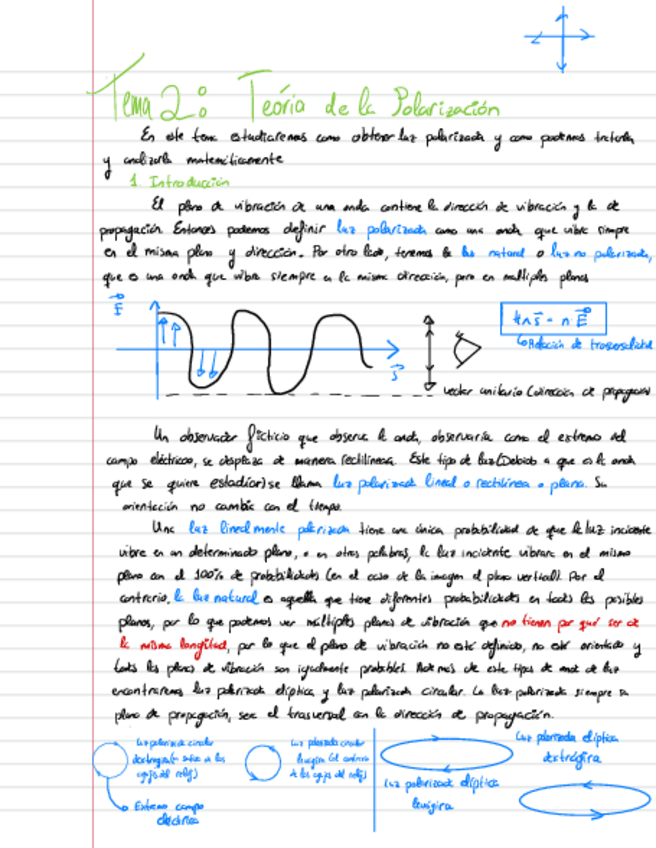 Tema 2: Teoría de la Polarización
En este tema estudiaremos como obtener luz polarizada y como podemos tratarla
y analizarla matemáticamente
1. Introducción
El plano de vibración de una onda contiene la dirección de vibración y la de
propagación. Entonces podemos definir luz polarizada como una onda que vibra siempre
en el mismo plano y dirección. Por otro lado, tenemos la luz natural o luz no polarizada,
que es una onda que vibra siempre en la misma dirección, pero en multiples planos
E
Relación de transversalidad
S
vector unitario (dirección de propagación)
Un observador ficticio que observe la onda, observaría como el extremo del
campo eléctrico, se desplaza de manera rectilínea. Este tipo de luz (Debido a que es la onda
que se quiere estudiar) se llama luz polarizada lineal o rectilínea o plana. Su
orientación no cambia con el tiempo.
Una luz linealmente polarizada tiene una única probabilidad de que la luz incidente
vibre en un determinado plano, o en otras palabras, la luz incidente vibrara en el mismo
plano con el 100% de probabilidades (en el caso de la imagen el plano vertical). Por el
contrario, la luz natural es aquella que tiene diferentes probabilidades en todos los posibles
planos, por lo que podemos ver múltiples planos de vibración que no tienen por qué ser de
la misma longitud, por lo que el plano de vibración no esté definido, no esté orientado y
todos los planos de vibración son igualmente probables. Además de este tipos de luz
encontraremos luz polarizada elíptica y luz polarizada circular. La luz polarizada siempre su
plano de propagación, sea el trasversal con la dirección de propagación.
Luz polarizada circular
dextrógira (en sentido a las
agujas del reloj)
Extremo campo
eléctrico
Luz polarizada circular
levógira (al contrario
a las agujas del reloj)
Luz polarizada elíptica
levógira
Luz polarizada elíptica
dextrógira